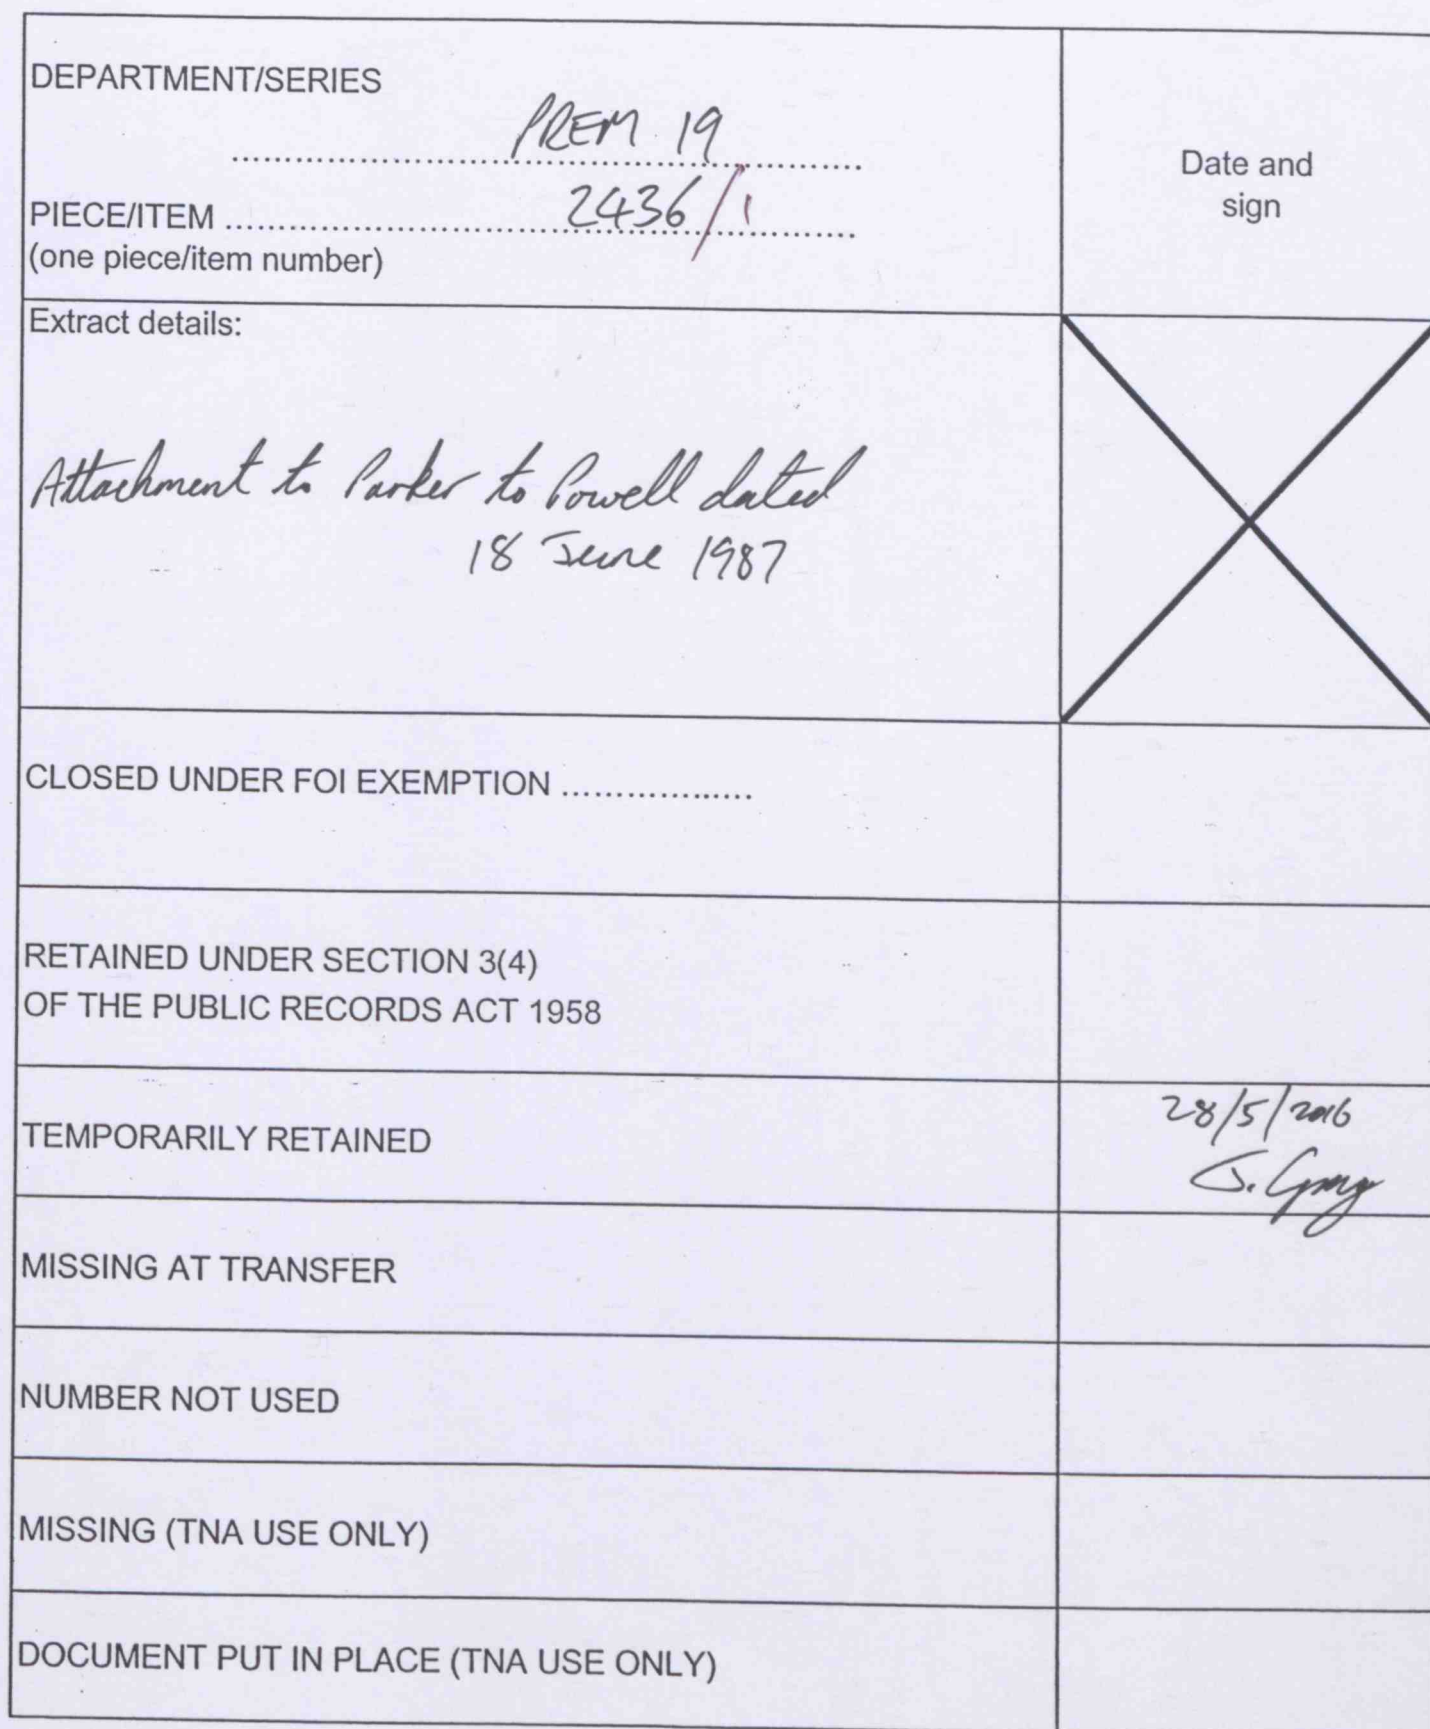 DEPARTMENT/SERIES
PREM 19
Date and
sign
PIECE/ITEM 2436/1
(one piece/item number)
Extract details:
Attachment to Parker to Powell dated
18 June 1987
CLOSED UNDER FOI EXEMPTION
RETAINED UNDER SECTION 3(4)
OF THE PUBLIC RECORDS ACT 1958
TEMPORARILY RETAINED
28/5/2016
MISSING AT TRANSFER
NUMBER NOT USED
MISSING (TNA USE ONLY)
DOCUMENT PUT IN PLACE (TNA USE ONLY)